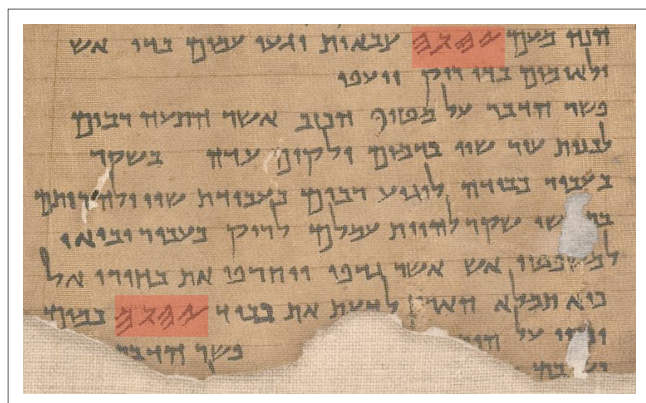 הנה מעם 𐤉𐤄𐤅𐤄 צבאות יגעו עמים בדי אש
ולאומים בדי ריק ייעפו
פשר הדבר על מטיף הכזב אשר התעה רבים
לבנות עיר שוו בדמים ולקים עדה בשקר
בעבור כבודה לוגיע רבים בעבודת שוו ולהרותם
שקר להיות עמלם לריק בעבור יבואו
למשפטי אש אשר גדפו ויחרפו את בחירי אל
כיא תמלא הארץ לדעת את כבוד 𐤉𐤄𐤅𐤄 כמים
על פשר הדבר